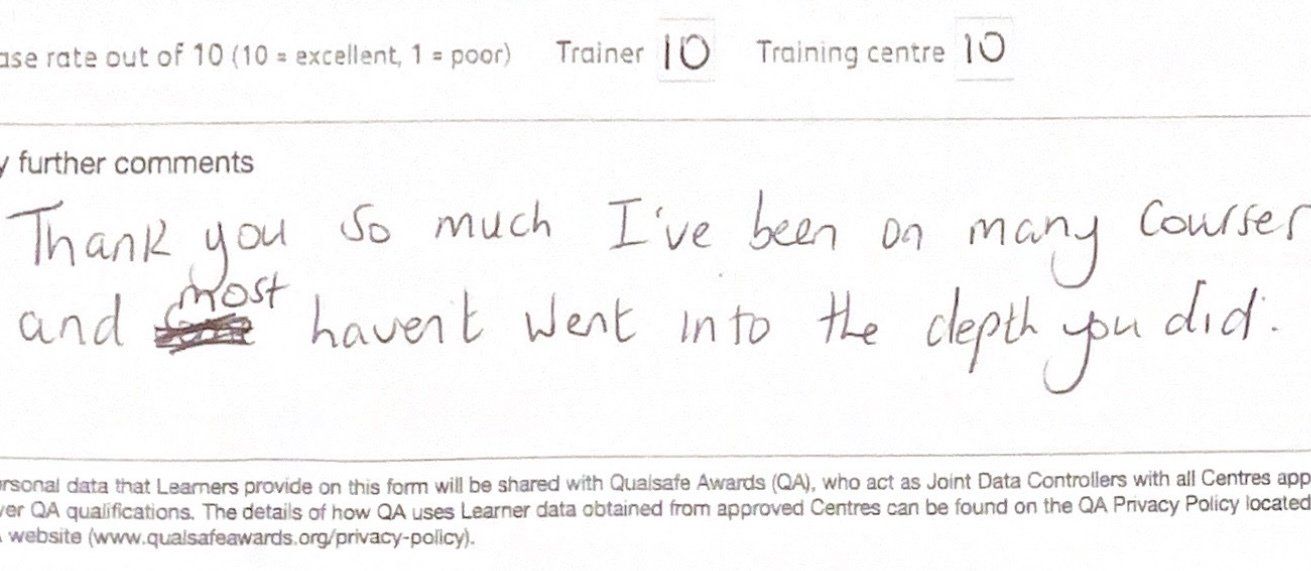 ase rate out of 10 (10 = excellent, 1 = poor) Trainer 10 Training centre 10
y further comments
Thank you so much I've been on many courses
and most haven't went into the depth you did.
ersonal data that Learners provide on this form will be shared with Qualsafe Awards (QA), who act as Joint Data Controllers with all Centres app
ver QA qualifications. The details of how QA uses Learner data obtained from approved Centres can be found on the QA Privacy Policy located
website (www.qualsafeawards.org/privacy-policy).